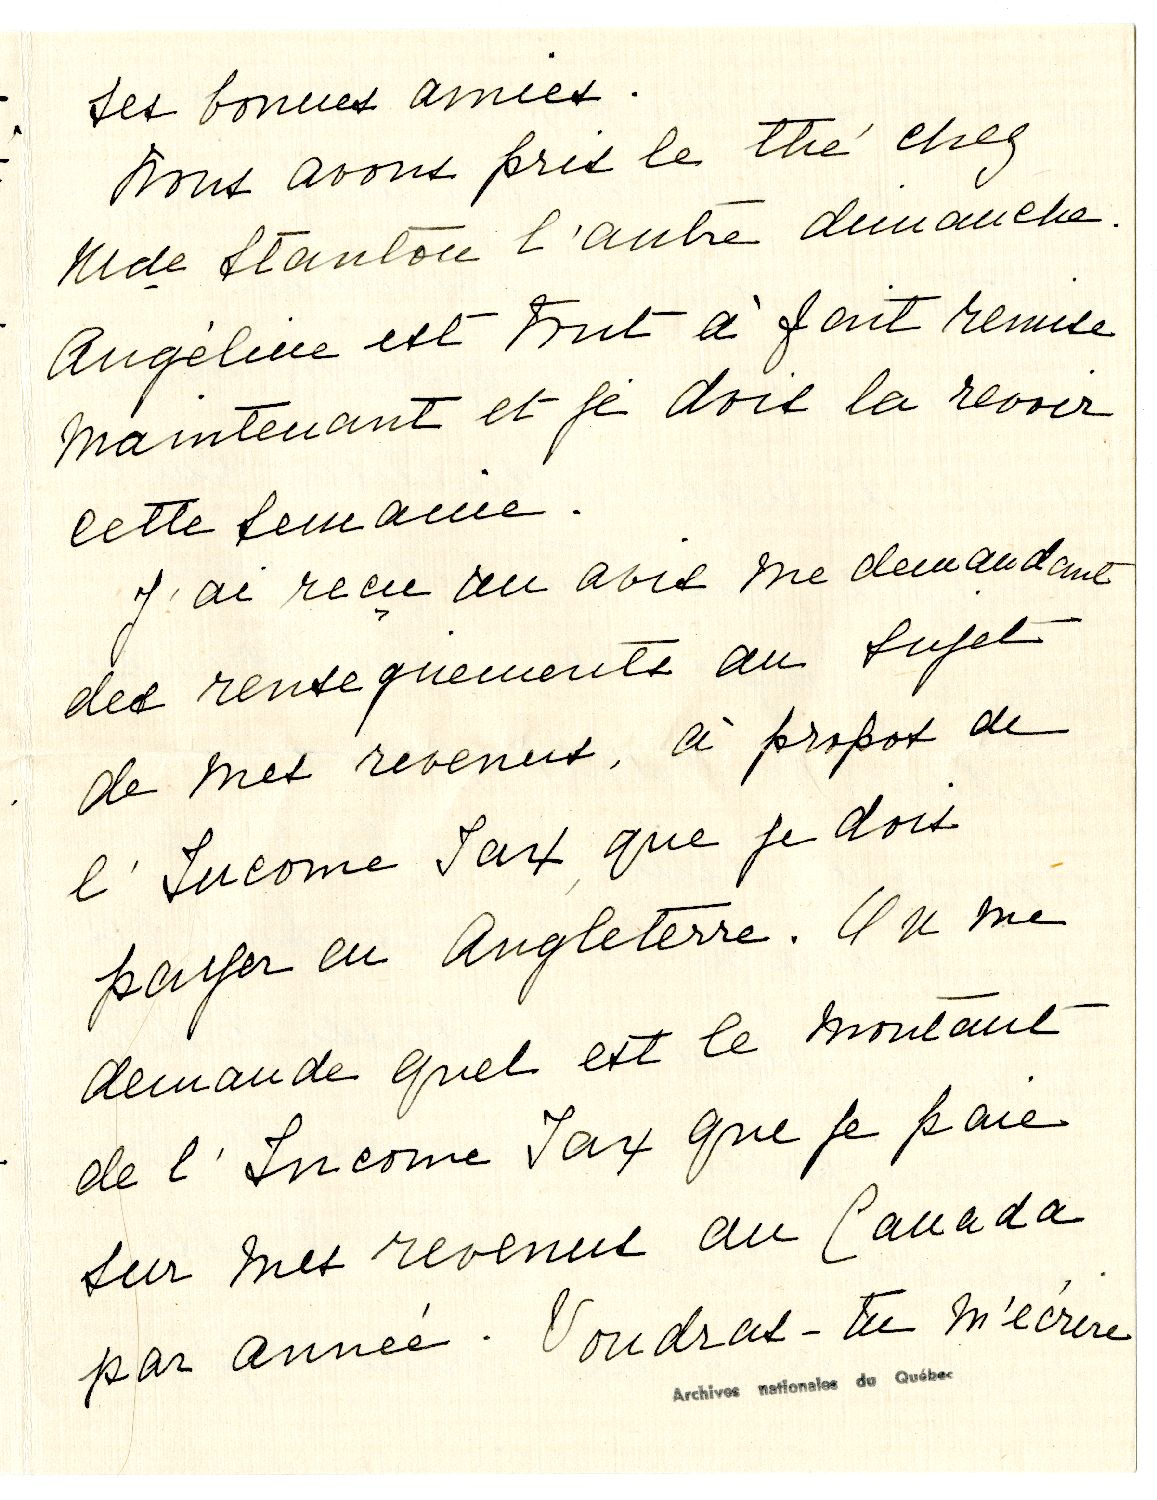 ses bonnes amies.
Nous avons pris le thé chez
Mde Stanton l'autre dimanche.
Angéline est tout à fait remise
maintenant et je dois la revoir
cette semaine.
J'ai reçu un avis me demandant
des renseignements au sujet
de mes revenus, à propos de
l'Income Tax, que je dois
payer en Angleterre. On me
demande quel est le montant
de l'Income Tax que je paie
sur mes revenus au Canada
par année. Voudras-tu m'écrire
Archives nationales du Québec